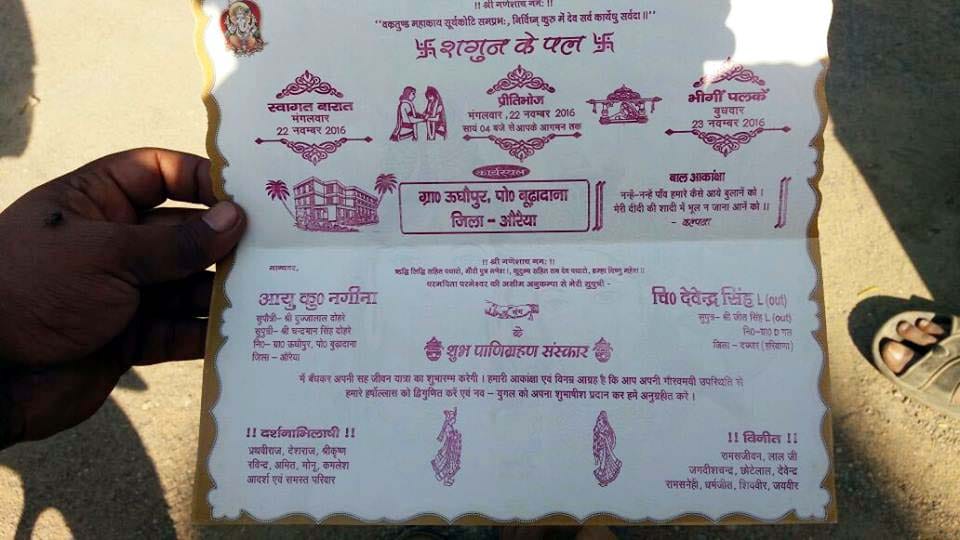 !! श्री गणेशाय नमः !!
"वक्रतुण्ड महाकाय सूर्यकोटि समप्रभः, निर्विघ्न कुरु में देव सर्व कार्येषु सर्वदा॥"
शगुन के पल
स्वागत बारात
मंगलवार
22 नवम्बर 2016
प्रीतिभोज
मंगलवार ,22 नवम्बर 2016
सायं 04 बजे से आपके आगमन तक
भीगीं पलकें
बुधवार
23 नवम्बर 2016
कार्यस्थल
ग्रा0 ऊधौपुर, पो0 बूढ़ादाना
जिला – औरैया
बाल आकांक्षा
नन्हें-नन्हें पाँव हमारे कैसे आये बुलानें को ।
मेरी दीदी की शादी में भूल न जाना आनें को ।।
- कल्पना
!! श्री गणेशाय नमः !!
मान्यवर,
ऋद्धि सिद्धि सहित पधारो, गौरी पुत्र गणेश ।, कुटुम्ब सहित सब देव पधारो, ब्रम्हा विष्णु महेश ।।
परमपिता परमेश्वर की असीम अनुकम्पा से मेरी सुपुत्री -
आयु कु0 नगीना
सुपौत्री– श्री दुज्जालाल दोहरे
सुपुत्री– श्री चन्दभान सिंह दोहरे
नि0– ग्रा0 ऊधौपुर, पो0 बूढ़ादाना
जिला – औरैया
संग
चि0 देवेन्द्र सिंह L (out)
सुपुत्र– श्री जीत सिंह L (out)
नि0–ग्रा0 D गल
जिला – दज्जर (हरियाणा)
के
शुभ पाणिग्रहण संस्कार
में बँधकर अपनी सह जीवन यात्रा का शुभारम्भ करेगी । हमारी आकांक्षा एवं विनम्र आग्रह है कि आप अपनी गौरवमयी उपस्थिति से
हमारे हर्षोल्लास को द्विगुणित करें एवं नव – युगल को अपना शुभाषीश प्रदान कर हमें अनुग्रहीत करे ।
!! दर्शनाभिलाषी !!
प्रथवीराज, देशराज, श्रीकृष्ण
रविन्द्र, अमित, मोनू, कमलेश
आदर्श एवं समस्त परिवार
!! विनीत !!
रामसजीवन, लाल जी
जगदीशचन्द्र, छोटेलाल, देवेन्द्र
रामसनेही, धर्मजीत, शिववीर, जयवीर